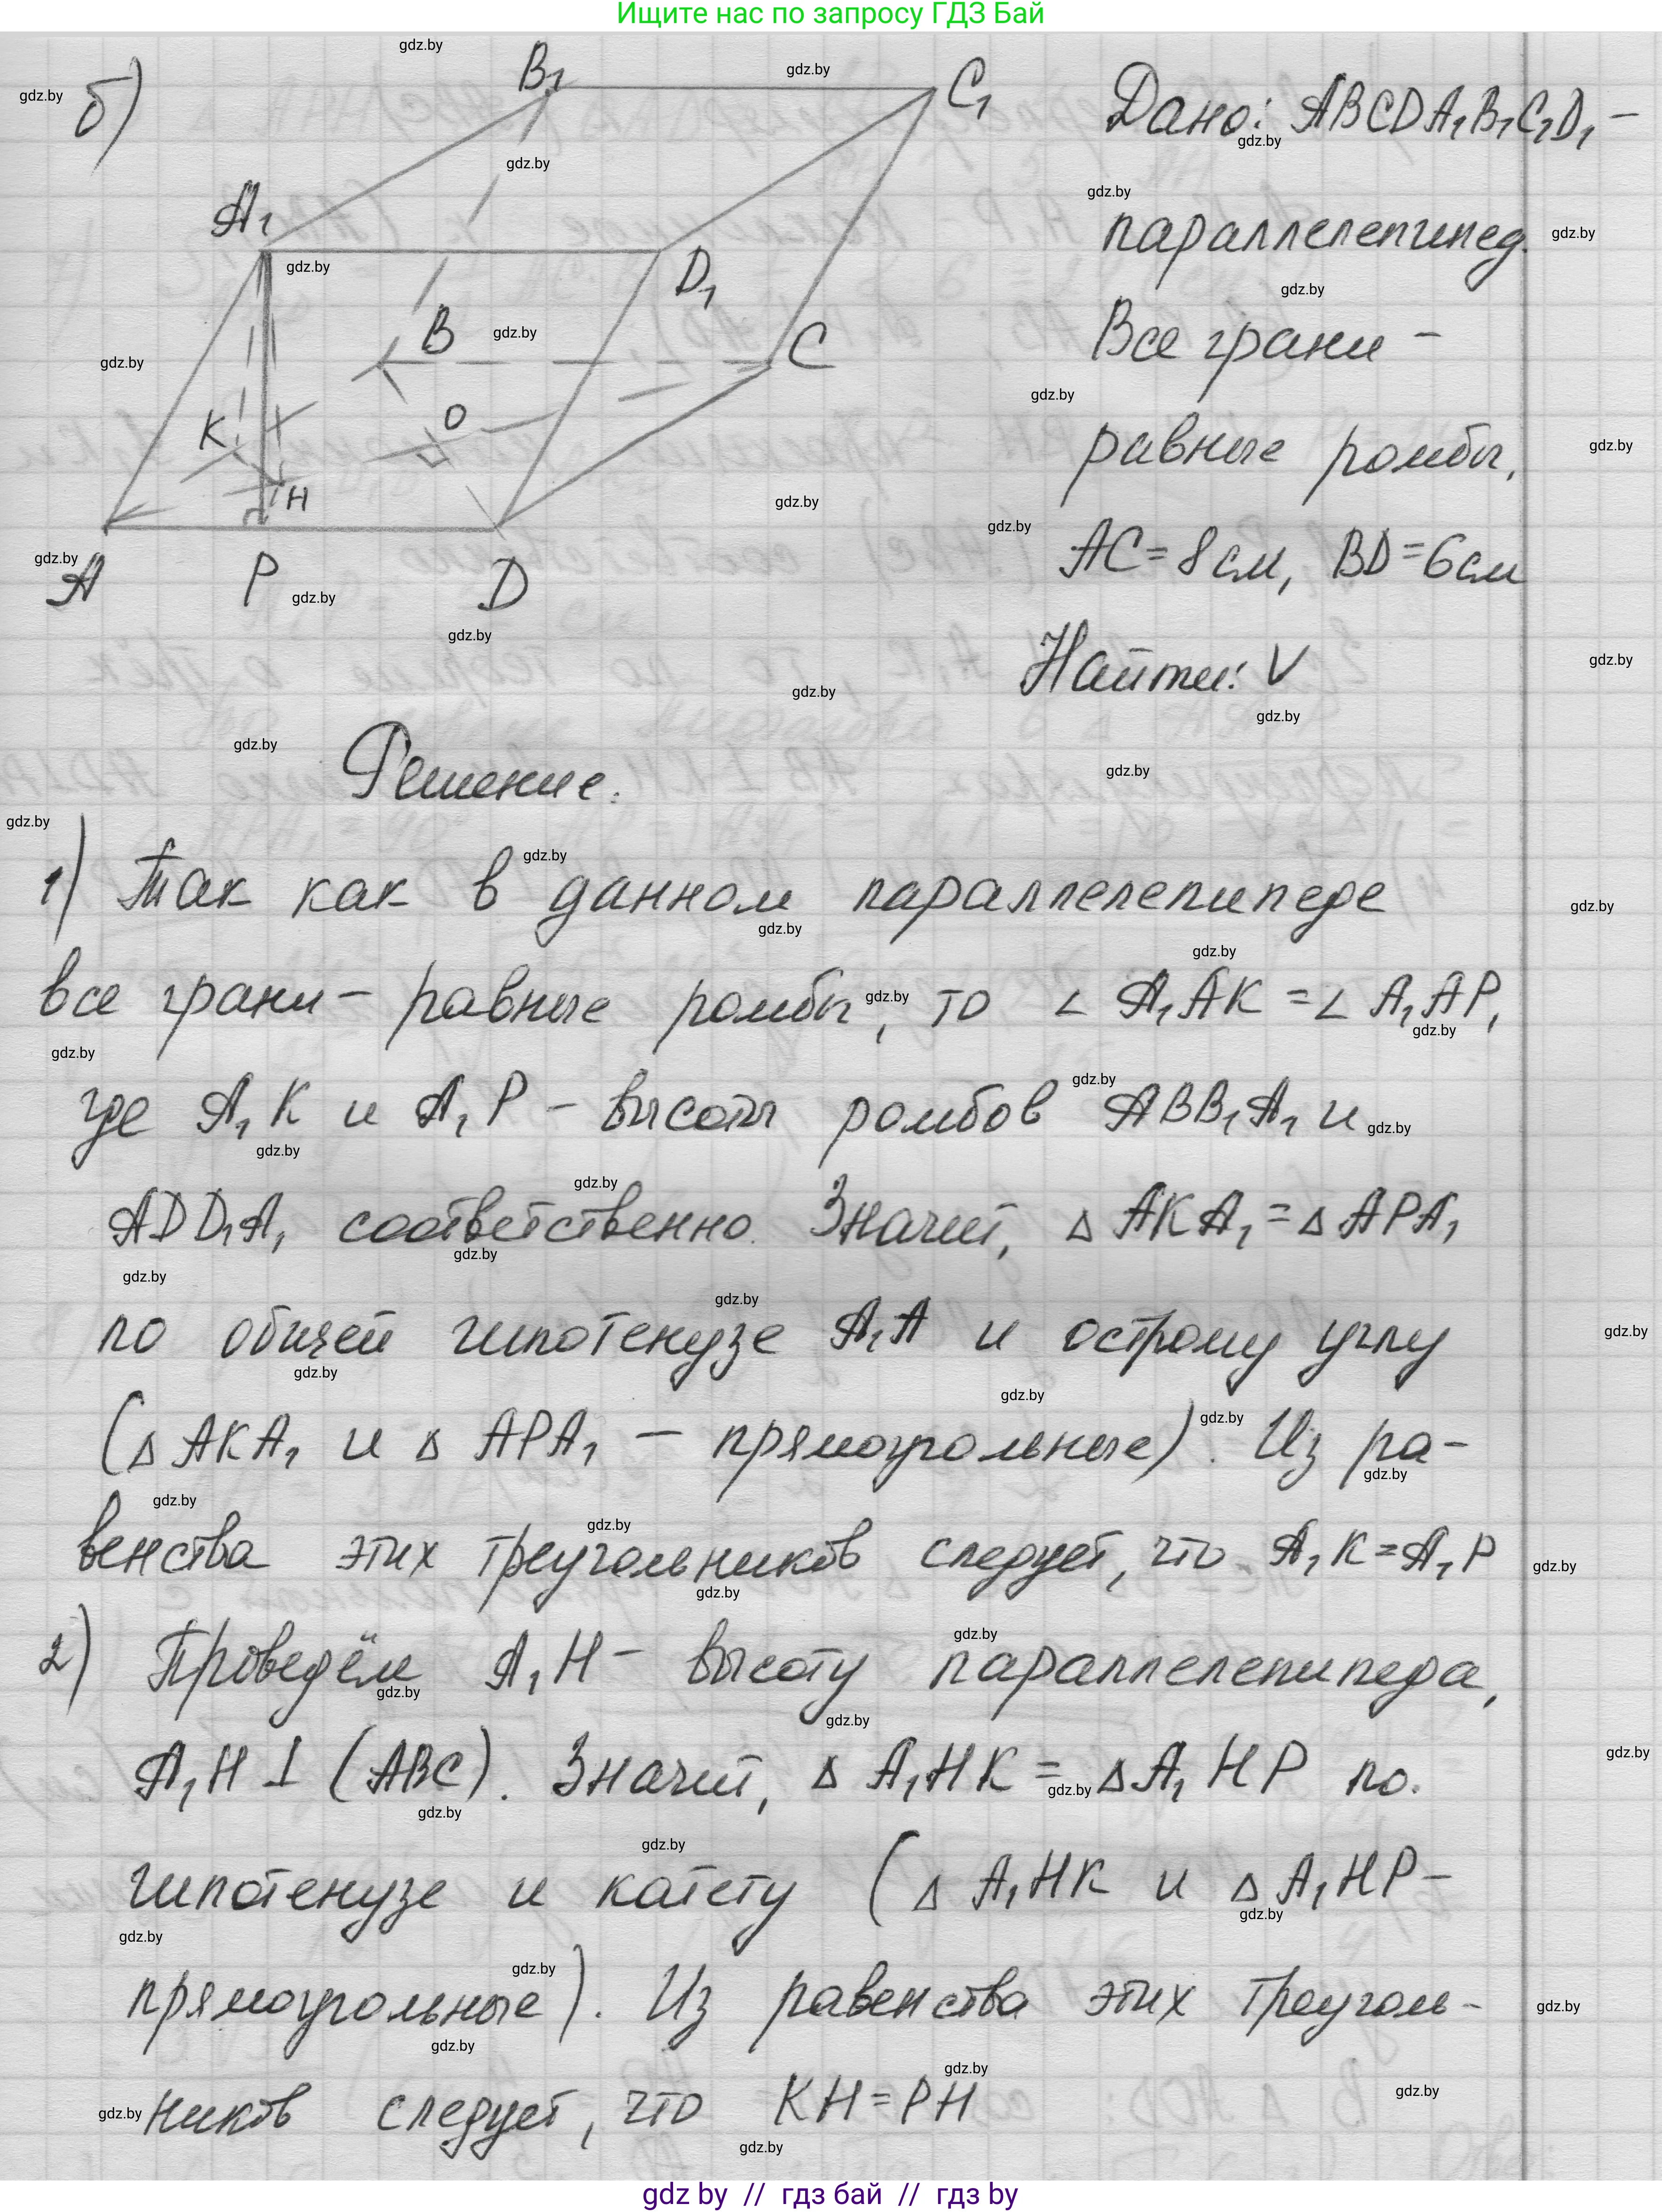 Ищите нас по запросу ГДЗ Бай
б)
B₁
C₁
A₁
D₁
B
C
K
O
H
A
P
D
Дано: ABCDA₁B₁C₁D₁ –
параллелепипед.
Все грани –
равные ромбы,
AC = 8 см, BD = 6 см
Найти: V
Решение:
1) Так как в данном параллелепипеде
все грани – равные ромбы, то ∠ A₁AK = ∠ A₁AP,
где A₁K и A₁P – высоты ромбов ABB₁A₁ и
ADD₁A₁ соответственно. Значит, Δ AKA₁ = Δ APA₁
по общей гипотенузе A₁A и острому углу
(Δ AKA₁ и Δ APA₁ – прямоугольные). Из ра-
венства этих треугольников следует, что A₁K = A₁P
2) Проведём A₁H – высоту параллелепипеда,
A₁H ⊥ (ABC). Значит, Δ A₁HK = Δ A₁HP по
гипотенузе и катету (Δ A₁HK и Δ A₁HP –
прямоугольные). Из равенства этих треуголь-
ников следует, что KH = PH
gdz by // гдз бай // гдз by